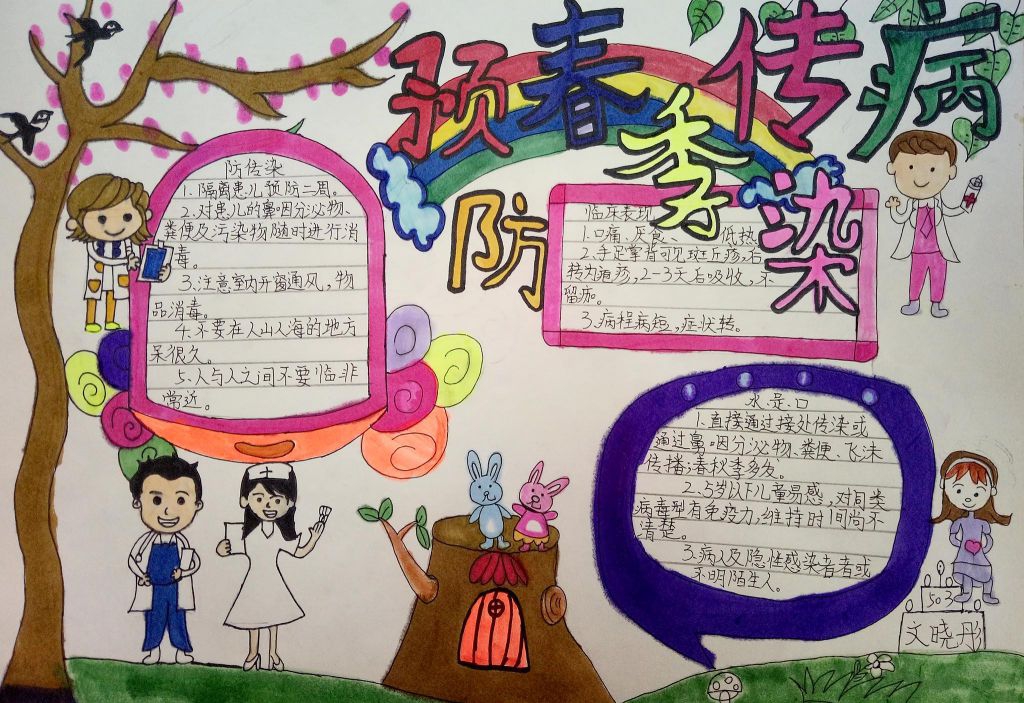 预春季传病
防 染
防传染
1.隔离患儿预防二周。
2.对患儿的鼻咽分泌物、
粪便及污染物随时进行消
毒。
3.注意室内开窗通风,物
品消毒。
4.不要在人山人海的地方
呆很久。
5.人与人之间不要临非
常近。
临床表现
1.口痛、厌食、 低热
2.手足掌背可见斑丘疹,后
转为疱疹,2-3天后吸收,不
留痂。
3.病程短,症状转。
水是口
1.直接通过接处传染或
通过鼻咽分泌物、粪便、飞沫
传播;春秋季多发。
2.5岁以下儿童易感,对同类
病毒型有免疫力,维持时间尚不
清楚。
3.病人及隐性感染者者或
不明陌生人。
503
文晓彤